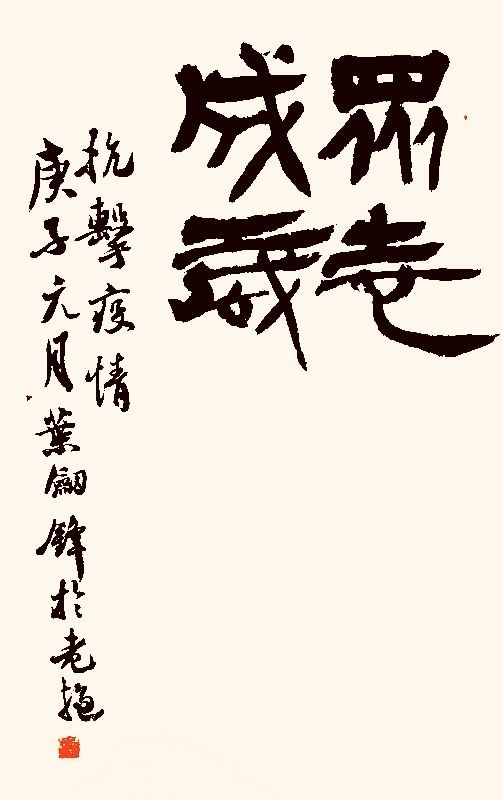 眾志
成城
抗擊疫情
庚子元月葉劍鋒於老撾